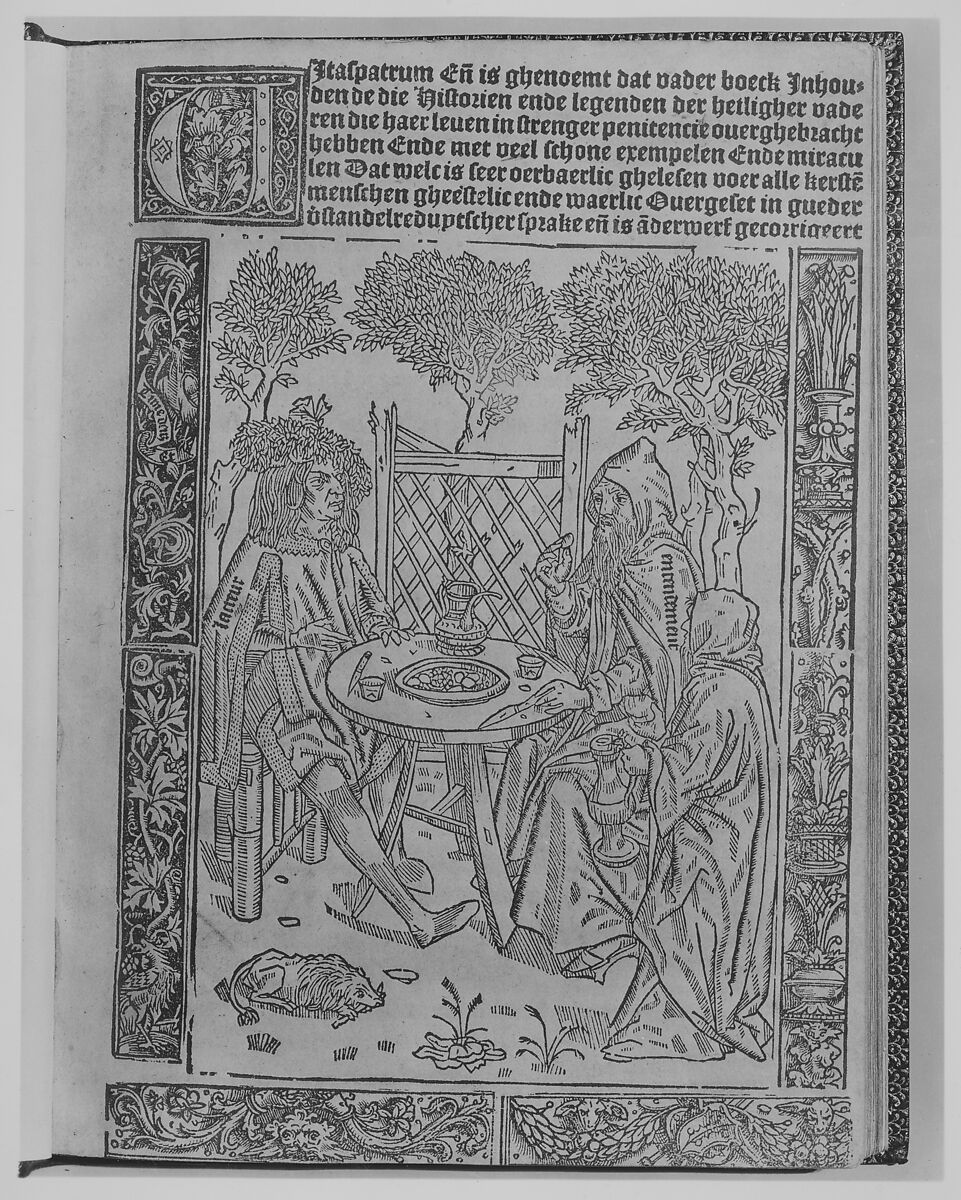 VItaspatrum Eñ is ghenoemt dat vader boeck Inhou⸗
den de die Historien ende legenden der heiligher vade
ren die haer leuen in strenger penitencie ouerghebracht
hebben Ende met veel schone exempelen Ende miracu
len Dat welc is seer oerbaerlic ghelesen voer alle kerstē
menschen gheestelic ende waerlic Ouergeset in gueder
v̄standelre duytscher sprake eñ is āderwerf gecorrigeert
lacteur
entendement